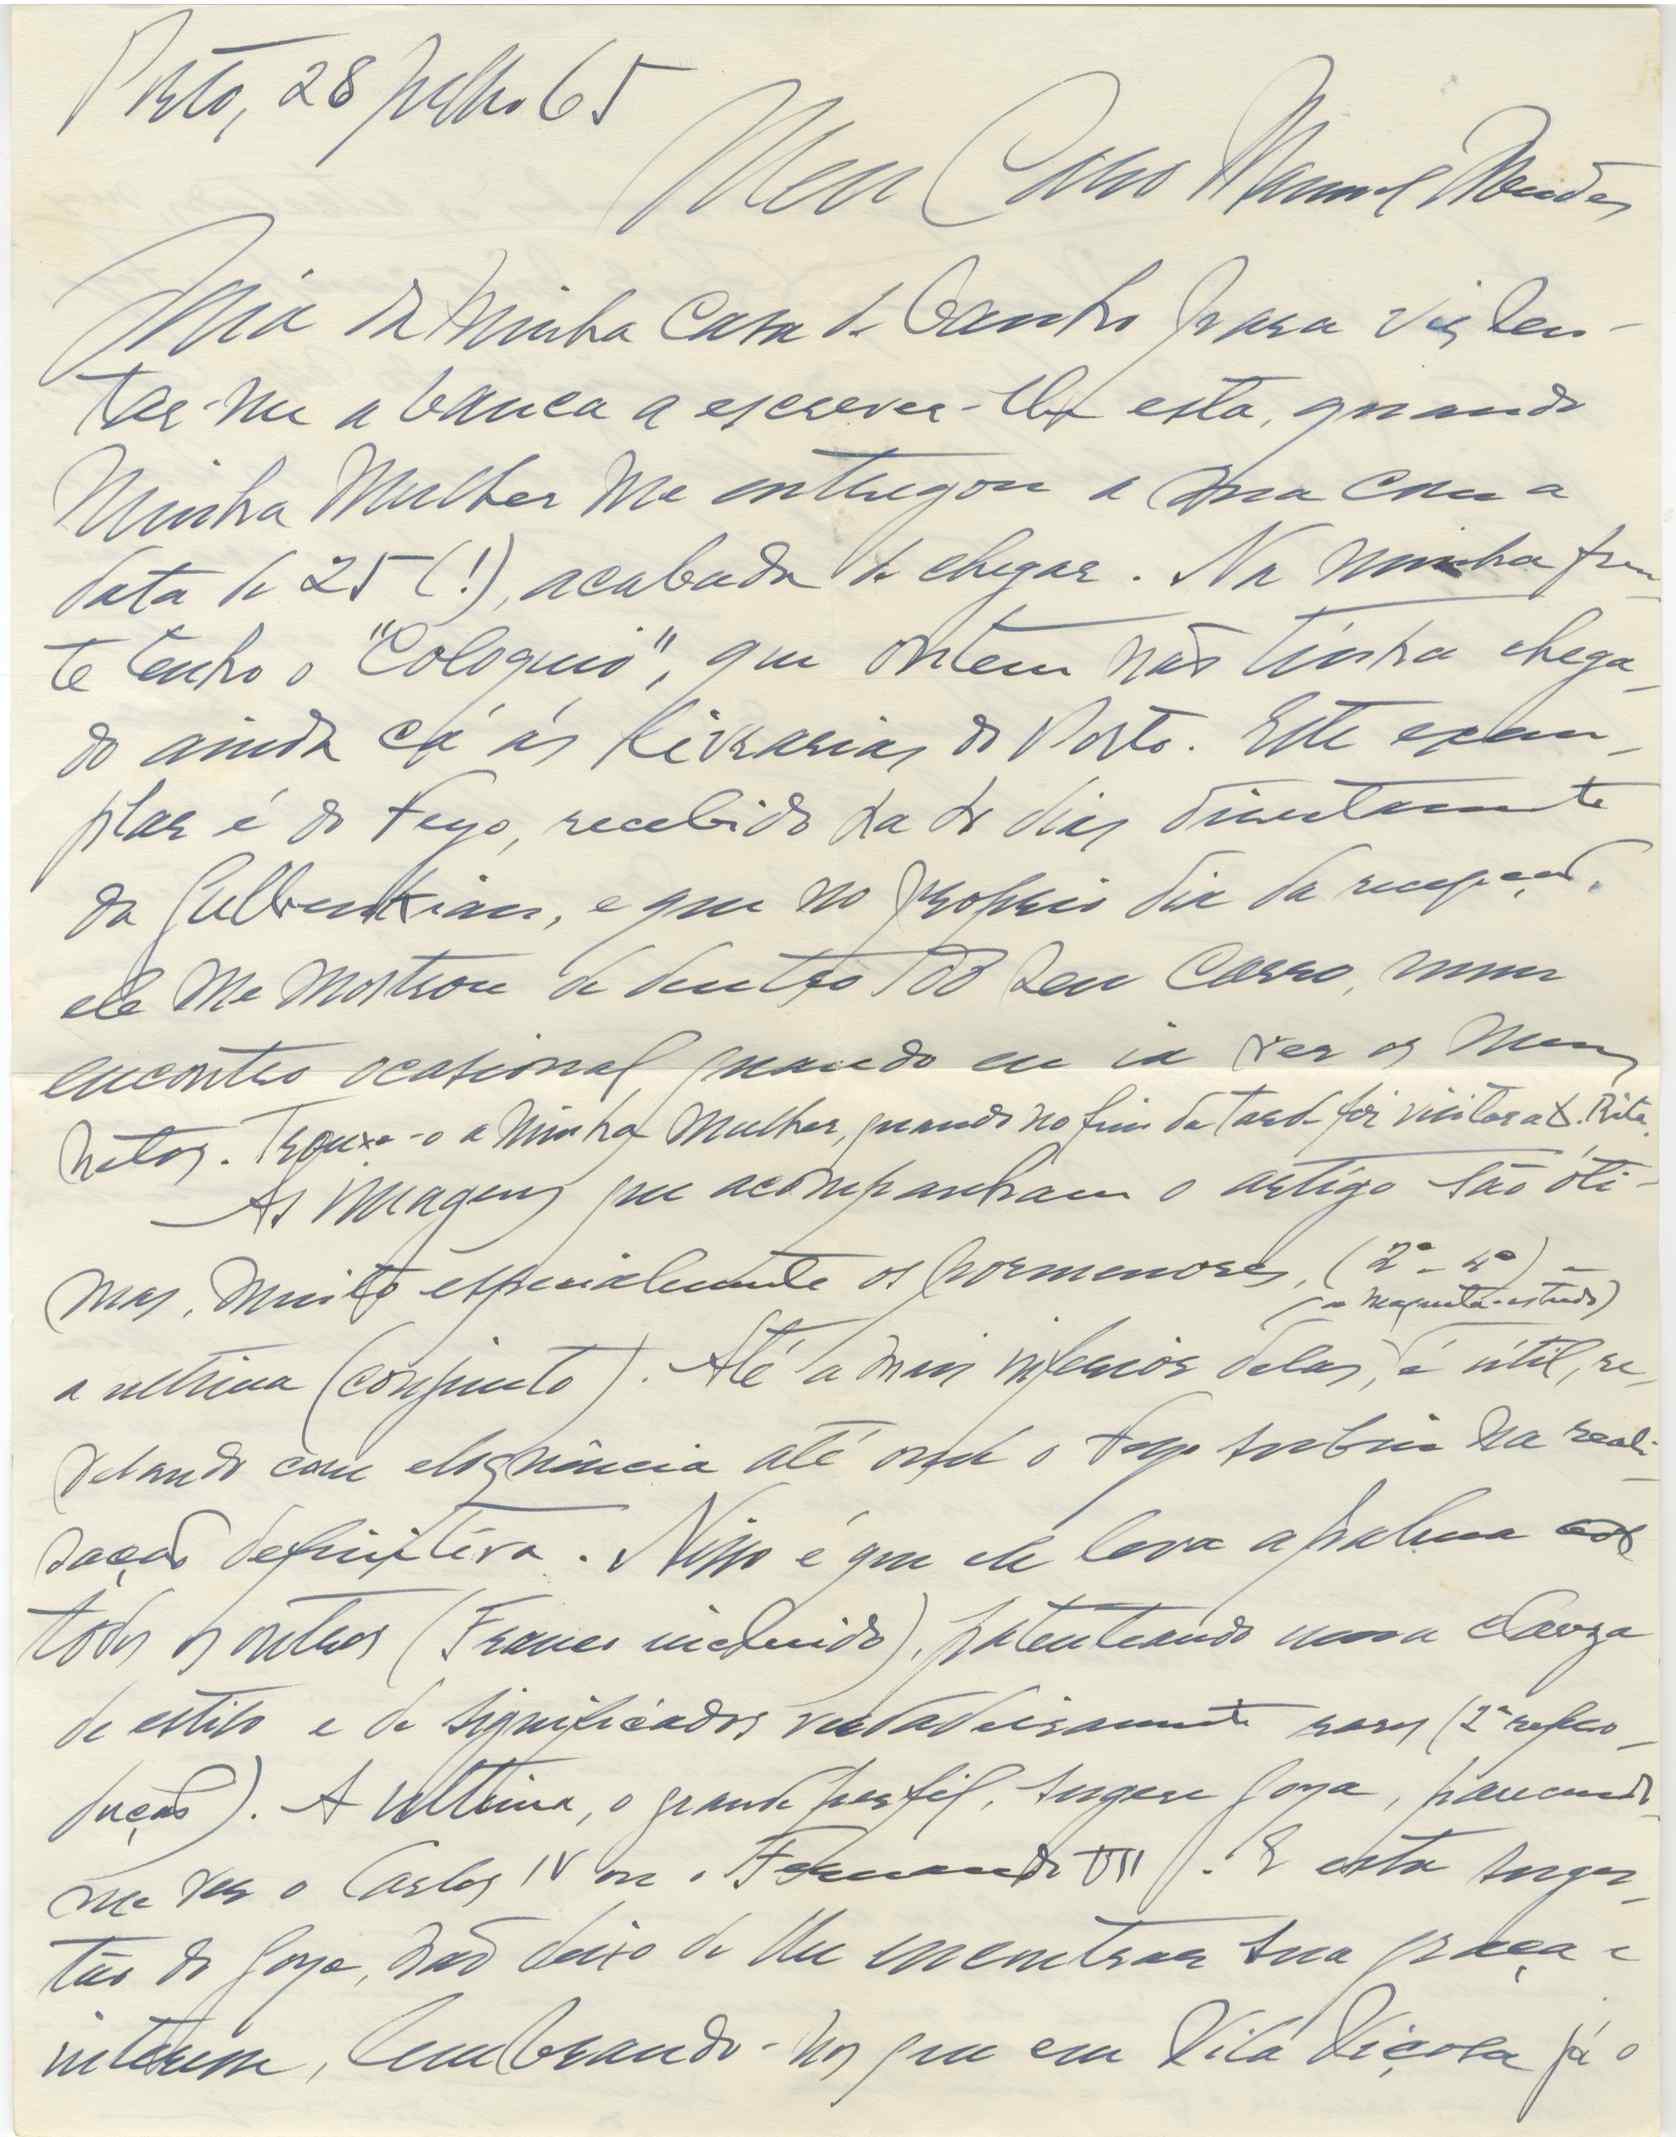 Porto, 28 Julho 65
Meu Caro Manuel Mendes
da minha casa de banho para vir sen-
tar-me à banca a escrever-lhe esta, quando
minha mulher me entregou a sua com a
data de 25 (!), acabada de chegar. Na minha fren-
te tenho o "Coloquio", que ontem não tinha chega-
do ainda cá ás livrarias do Porto. Este exem-
plar é do Feyo, recebido ha de dias directamente
da Gulbenkian, e que no proprio dia da recepção,
ele me mostrou de dentro do seu carro, num
encontro ocasional quando eu ia ver os meus
netos. Trouxe-o a minha mulher, quando no fim da tarde foi visitar a D. Rita.
As imagens que acompanham o artigo são óti-
mas, muito especialmente os pormenores, (2ª - 4ª) -
(a maqueta-estudo)
a ultima (conjunto). Até a mais inferior delas, é útil, re-
velando com eloquência até onde o Feyo subiu na reali-
zação definitiva. Nisso é que ele leva a palma
todos os outros (Franco incluido), patenteando uma clareza
de estilo e de significados verdadeiramente raros (2ª repro-
dução). A ultima, o grande perfil, sugere Goya, parecendo-
me ver o Carlos IV ou o Fernando VII. E esta suges-
tão do Goya, não deixo de lhe encontrar sua graça e
interesse, lembrando-nos que em Vila Viçosa já o